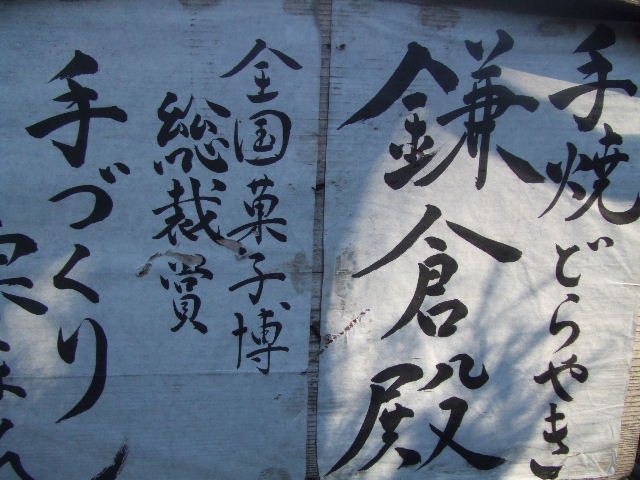 手焼どらやき
鎌倉殿
全国菓子博
総裁賞
手づくり